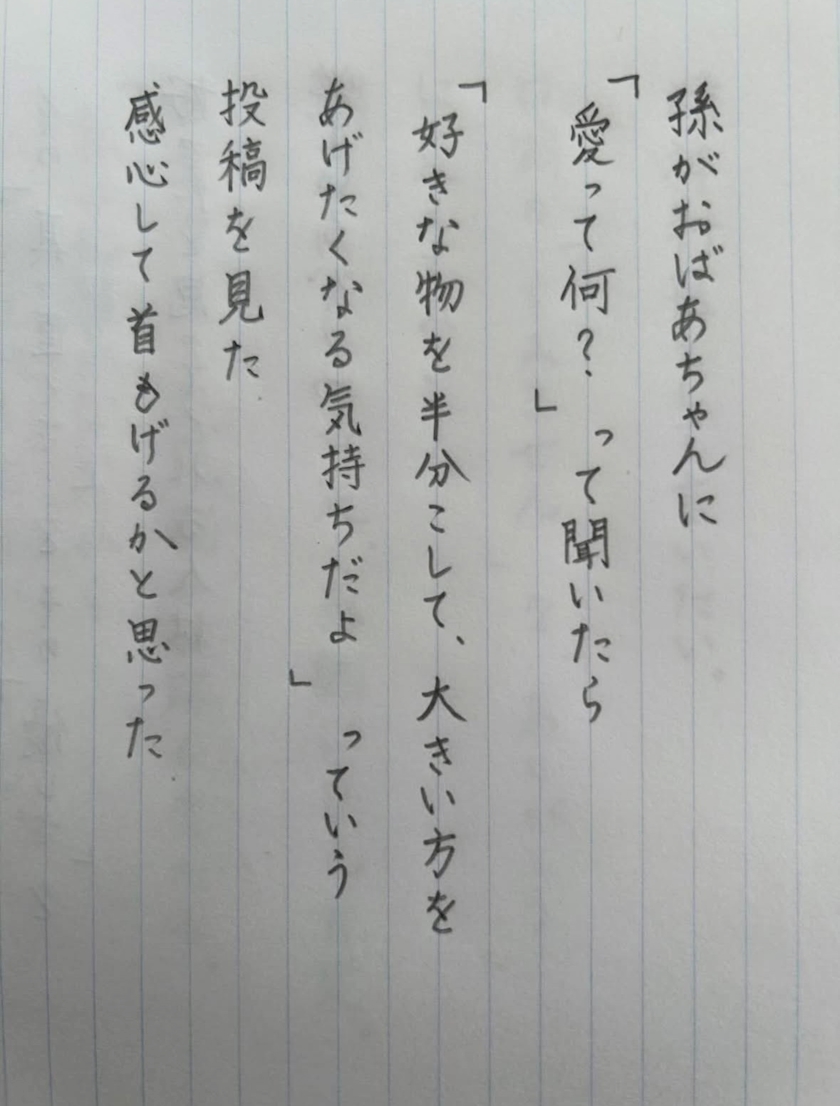 孫がおばあちゃんに
「愛って何？」って聞いたら
「好きな物を半分こして、大きい方を
あげたくなる気持ちだよ」っていう
投稿を見た
感心して首もげるかと思った